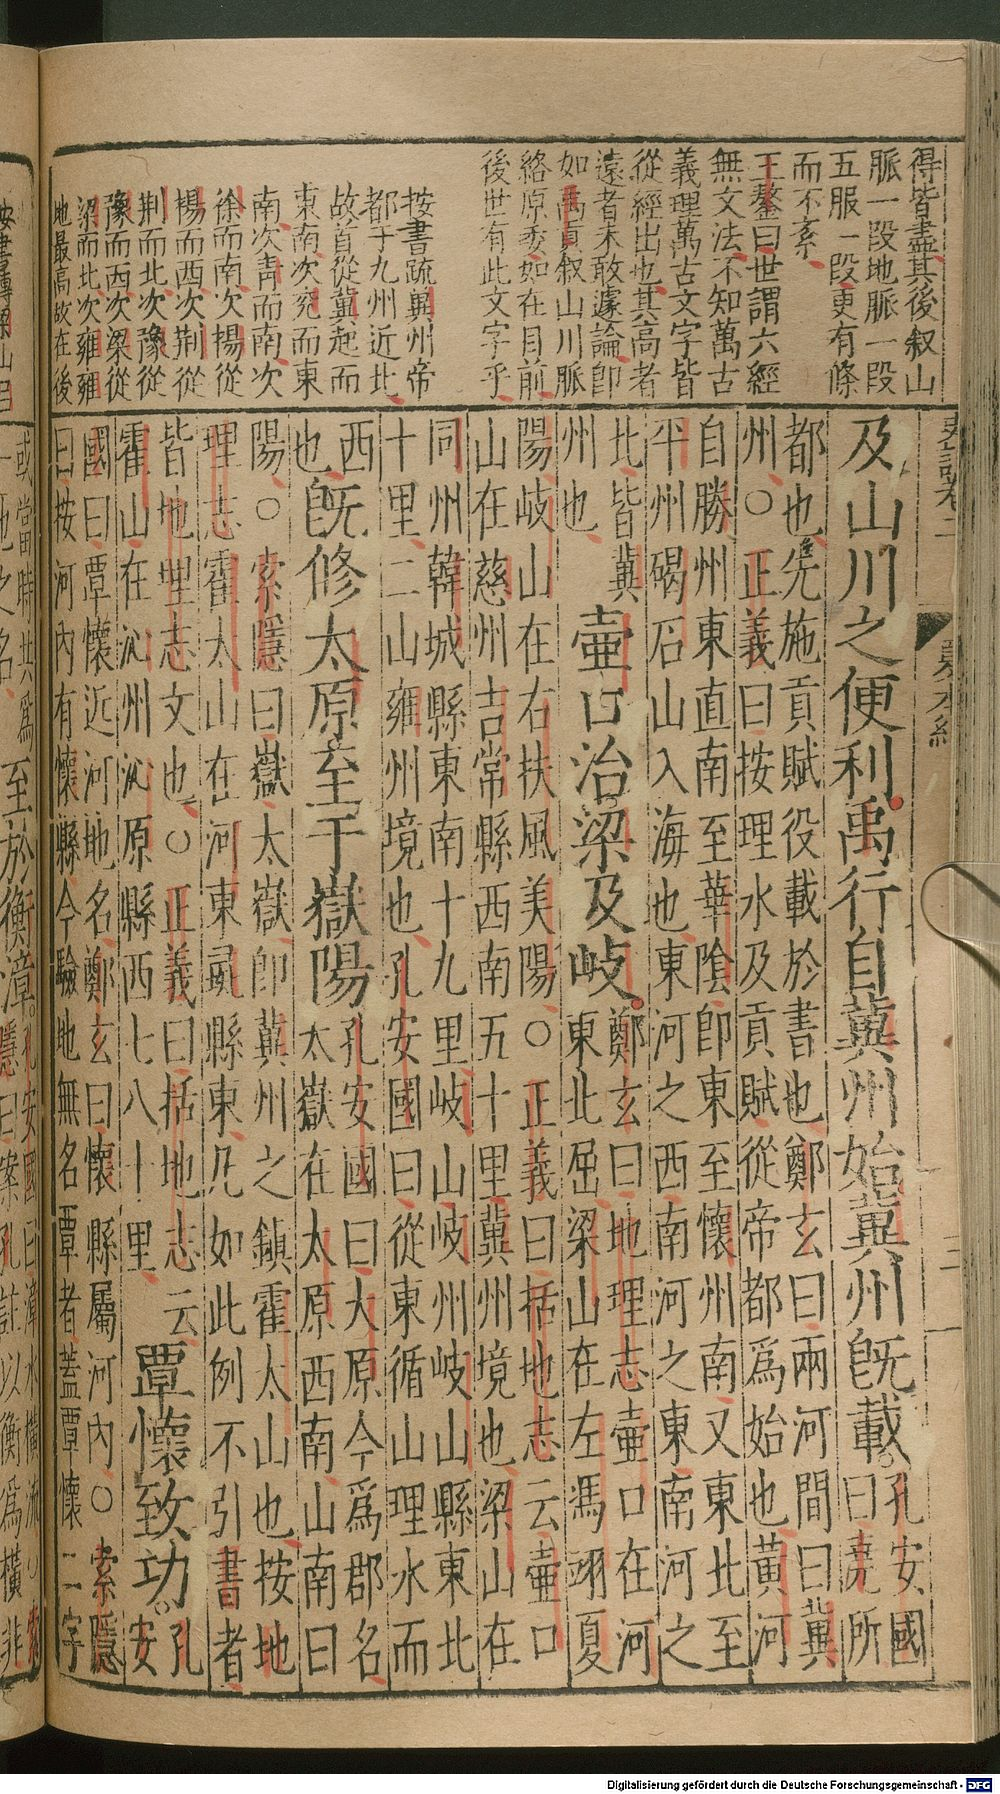 得皆盡其後叙山
脈一段地脈一段
五服一段更有條
而不紊
王鏊曰世謂六經
無文法不知萬古
義理萬古文字皆
從經出也其高者
遠者未敢遽論即
如禹貢叙山川脈
絡原委如在目前
後世有此文字乎
按書疏冀州帝
都于九州近北
故首從冀起而
東南次兖而東
南次青而南次
徐而南次楊從
楊而西次荆從
荆而北次豫從
豫而西次梁從
梁而北次雍雍
地最高故在後
夏本紀
三
及山川之便利禹行自冀州始冀州既載孔安國
曰堯所
都也先施貢賦役載於書也鄭玄曰兩河間曰冀
州○正義曰按理水及貢賦從帝都為始也黃河
自勝州東直南至華陰即東至懷州南又東北至
平州碣石山入海也東河之西南河之東南河之
北皆冀
州也
壺口治梁及岐鄭玄曰地理志壺口在河
東北屈梁山在左馮翊夏
陽岐山在右扶風美陽○正義曰括地志云壺口
山在慈州吉常縣西南五十里冀州境也梁山在
同州韓城縣東南十九里岐山岐州岐山縣東北
十里二山雍州境也孔安國曰從東循山理水而
西
也
既修太原至于嶽陽孔安國曰太原今為郡名
太嶽在太原西南山南曰
陽○索隱曰嶽太嶽即冀州之鎮霍太山也按地
理志霍太山在河東彘縣東凡如此例不引書者
皆地理志文也○正義曰括地志云
霍山在沁州沁原縣西七八十里
覃懷致功孔
安
國曰覃懷近河地名鄭玄曰懷縣屬河內○索隱
曰按河內有懷縣今驗地無名覃者蓋覃懷二字
或當時共為
一地之名
至於衡漳孔安國曰漳水橫流○索
隱曰案孔註以衡為橫非
Digitalisierung gefördert durch die Deutsche Forschungsgemeinschaft - DFG